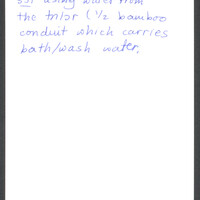 using water from
the tn/or (1/2 bamboo
conduit which carries
bath/wash water.